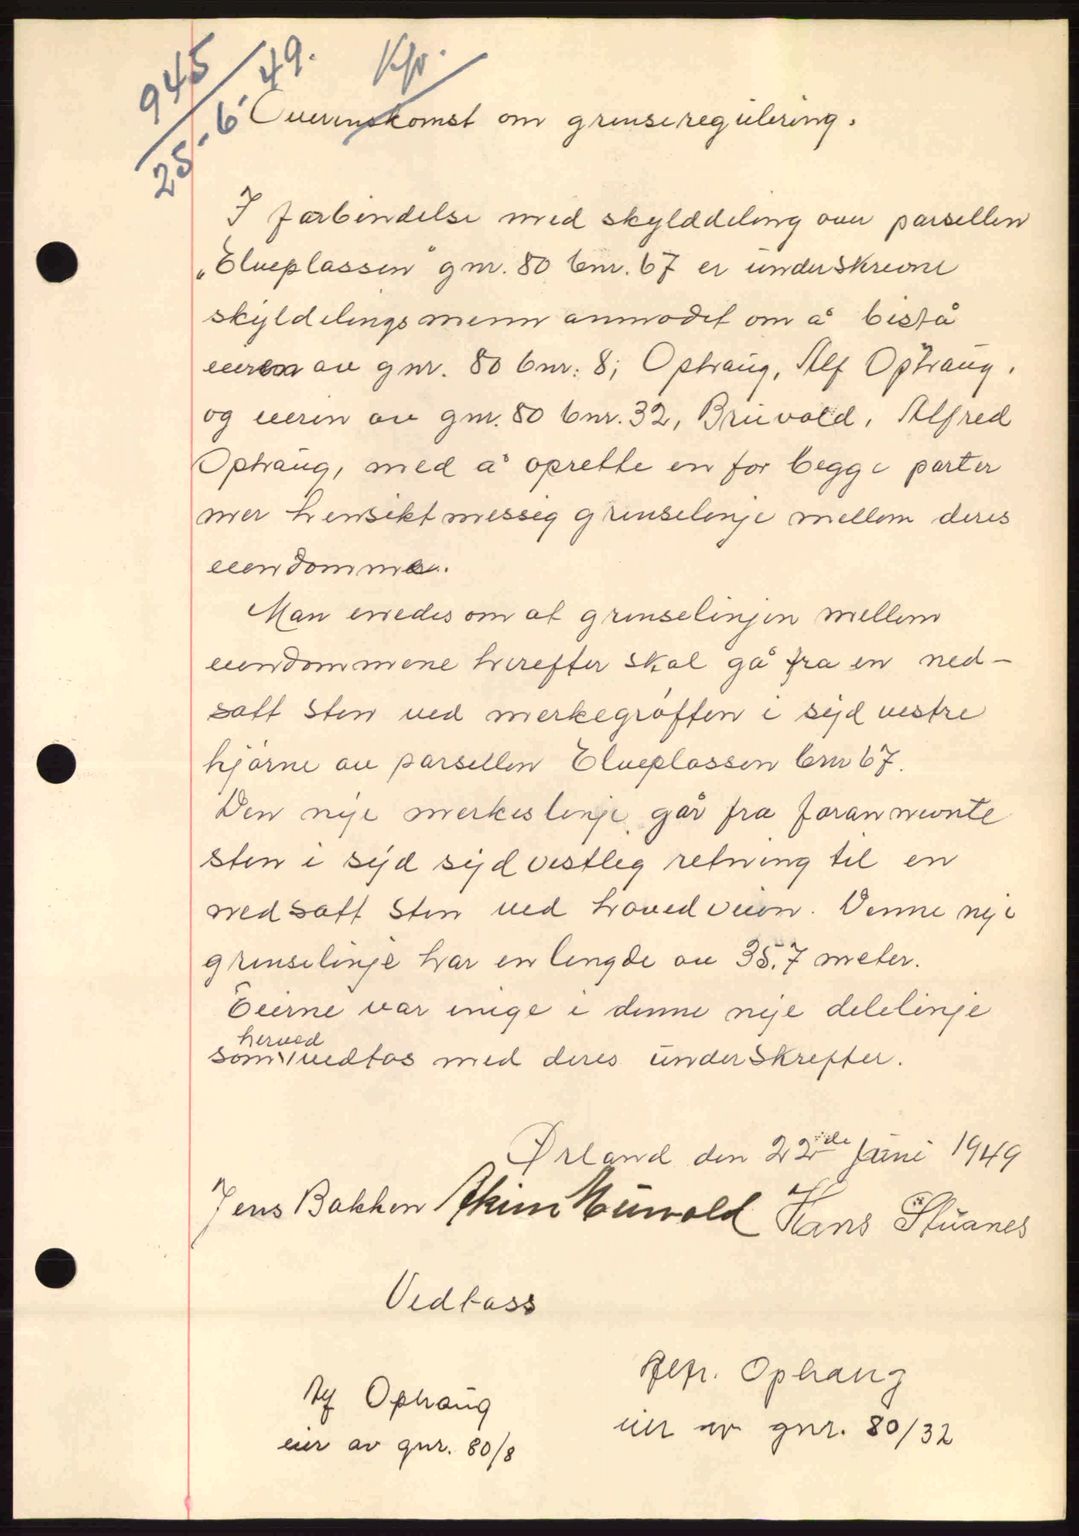 945
25-6-49.
Kfr.
Overenskomst om grenseregulering.
I forbindelse med skylddeling over parsellen
„Elveplassen" gnr. 80 bnr. 67 er underskrevne
skyldelingsmenn anmodet om å bistå
eieren av gnr. 80 bnr. 8; Ophaug, Alf Ophaug,
og eieren av gnr. 80 bnr. 32, Bruvold, Alfred
Ophaug, med å oprette en for begge parter
mer hensiktmessig grenselinje mellom deres
eiendomme.
Man enedes om at grenselinjen mellem
eiendommene herefter skal gå fra en ned-
satt sten ved merkegrøften i syd vestre
hjørne av parsellen Elveplassen bnr 67.
Den nye merkeslinje går fra forannevnte
sten i syd sydvestleg retning til en
nedsatt sten ved hovedveien. Denne nye
grenselinje har en lengde av 35.7 meter.
Eierne var enige i denne nye delelinje
som herved vedtas med deres underskrefter.
Ørland den 22de juni 1949
Jens Bakken Hans Stuanes
Vedtass
Alf Ophaug
eier av gnr. 80/8
Alfr. Ophaug
eier av gnr. 80/32